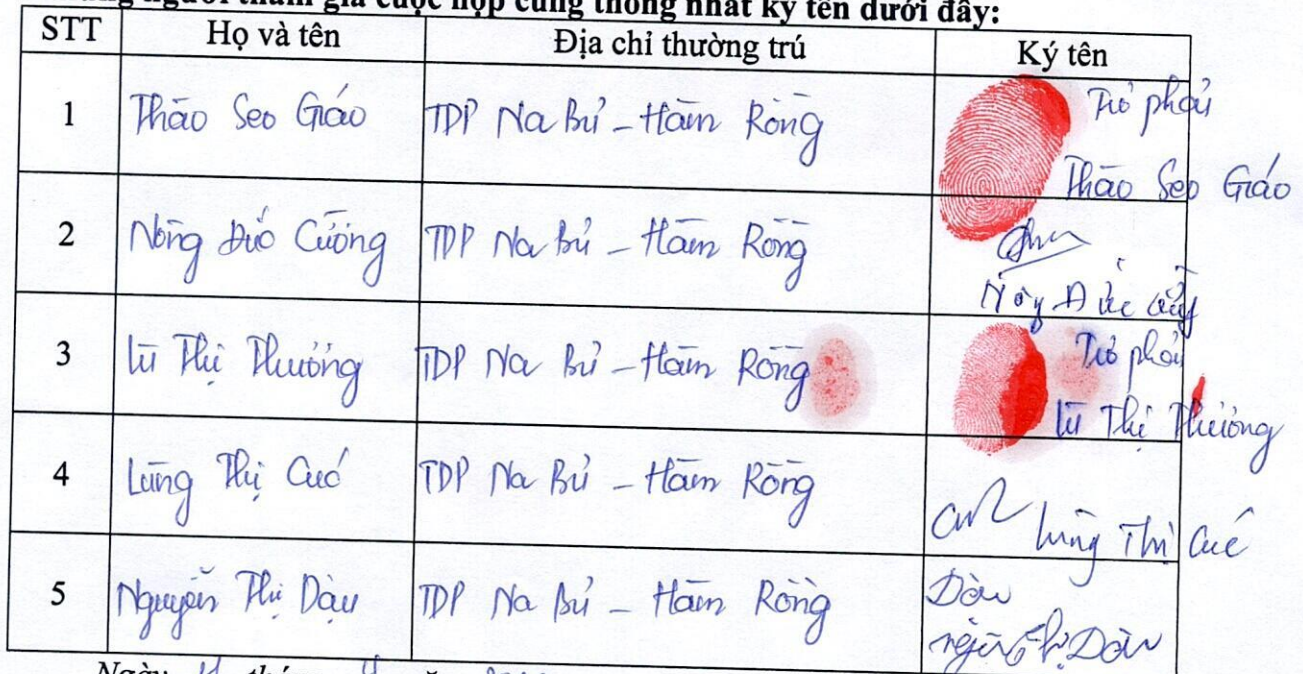 người tham gia cuộc họp cùng thống nhất ký tên dưới đây:
STT Họ và tên Địa chỉ thường trú Ký tên
1 Thào Seo Giáo TDP Na Bủ - Hàm Rồng Trỏ phải
Thào Seo Giáo
2 Nông Đức Cường TDP Na Bủ - Hàm Rồng
3 Lù Thị Thưởng TDP Na Bủ - Hàm Rồng Trỏ phải
Lù Thị Thưởng
4 Lùng Thị Cuó TDP Na Bủ - Hàm Rồng
Lùng Thị
5 Nguyễn Thị Dàu TDP Na Bủ - Hàm Rồng
Ngày 4